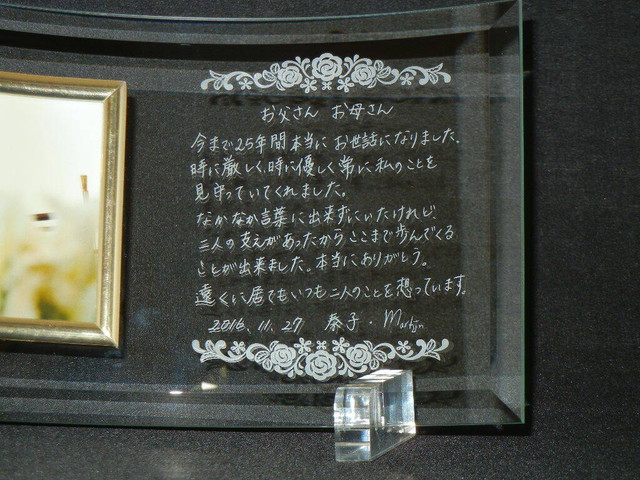 お父さん お母さん
今まで25年間本当にお世話になりました。
時に厳しく、時に優しく常に私のことを
見守っていてくれました。
なかなか言葉に出来ずにいたけれど
二人の支えがあったからここまで歩んでくる
ことが出来ました。本当にありがとう。
遠くに居てもいつも二人のことを想っています。
2016.11.27 泰子・Martijn